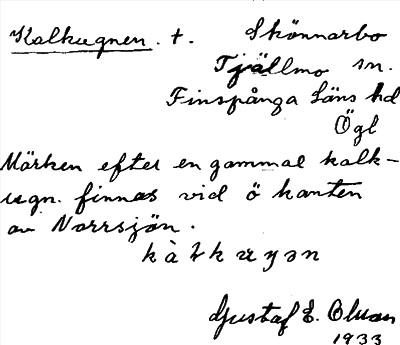 Kalkugnen. t. Skönnarbo
Tjällmo sn.
Finspånga läns hd
Ögl
Märken efter en gammal kalk-
ugn. finnas vid ö kanten
av Norrsjön.
Gustaf E. Olsson
1933